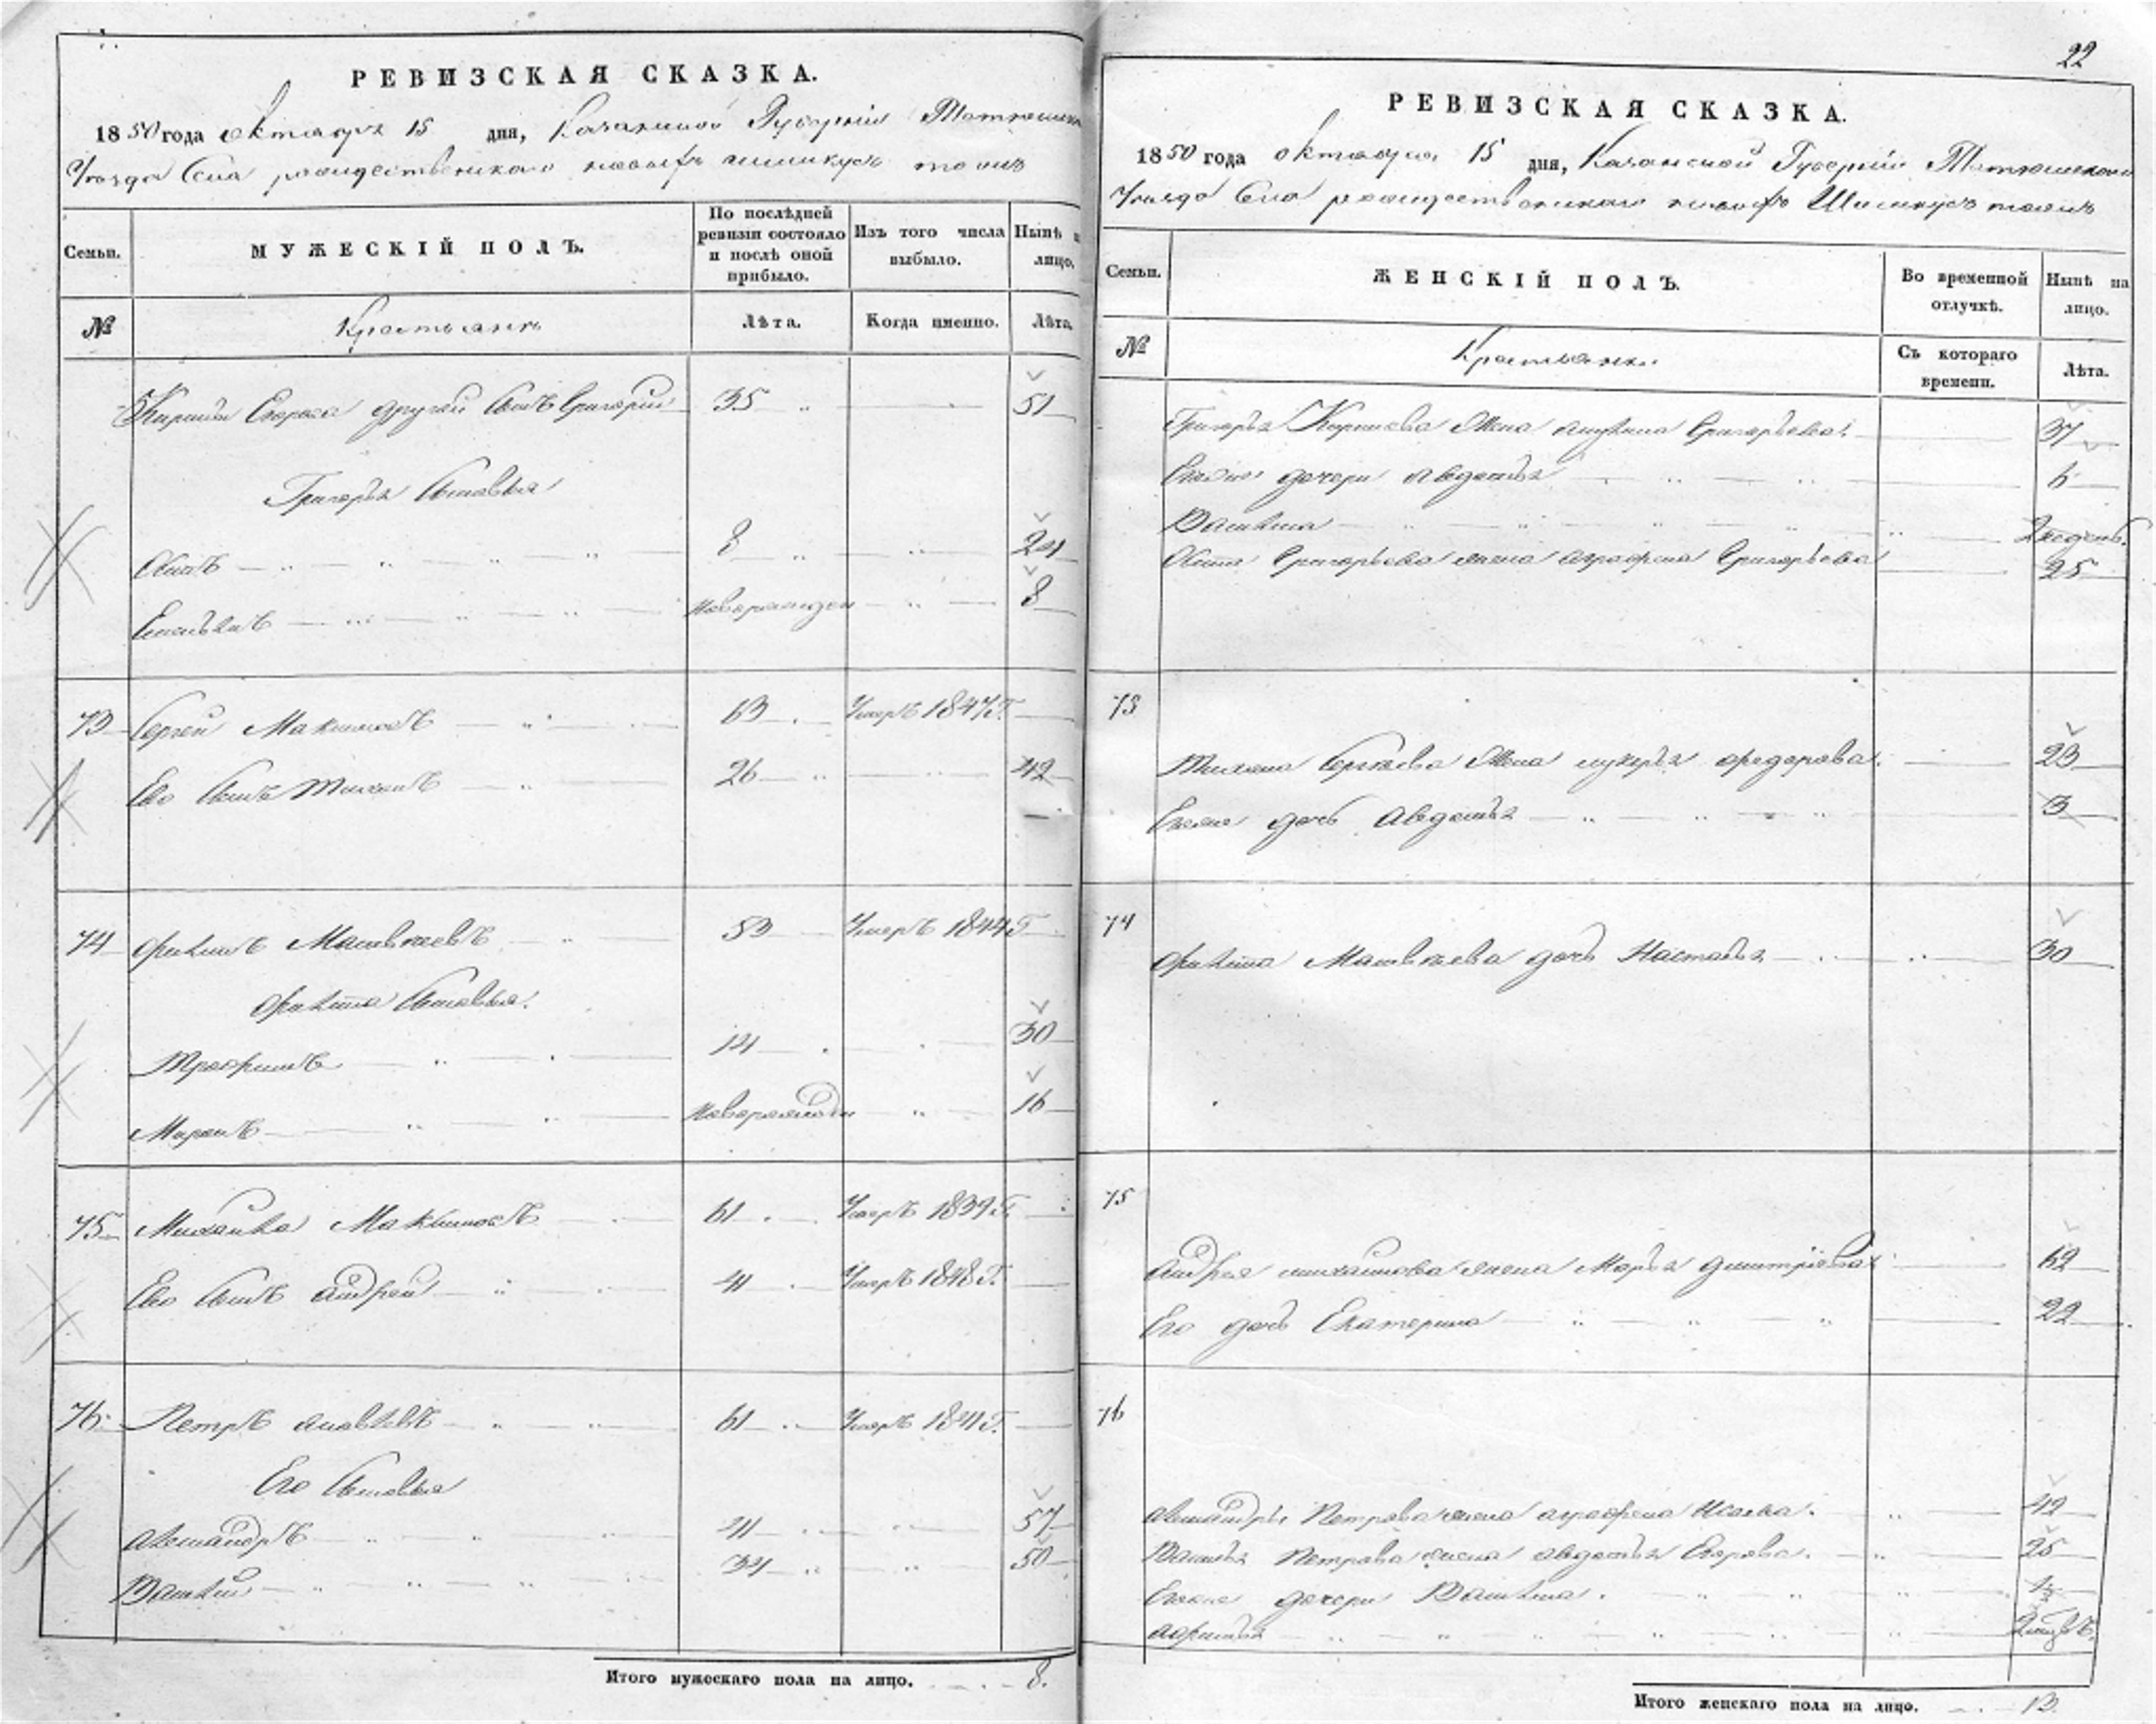 РЕВИЗСКАЯ СКАЗКА.
1850 года октября 15 дня, Казанской Губернiи
Уезда Села рождественскаго тожъ
Семьи.
МУЖЕСКІЙ ПОЛЪ.
По послѣдней ревизіи состояло и послѣ оной прибыло.
Изъ того числа выбыло.
Нынѣ на лицо.
№
Крестьяне
Лѣта.
Когда именно.
Лѣта.
Егорова другой сынъ Григорiй 35 51
Григорья сыновья
8 24
новорожден 8
73 Сергей Максимовъ 63 Умеръ 1847 г.
Ево сынъ Тихонъ 26 42
74 Филипъ Матвеевъ 53 Умеръ 1844 г
Филипа сыновья
Трофимъ 14 30
Миронъ новорожден 16
75 Михайла Максимовъ 61 Умеръ 1839 г.
Ево сынъ Андрей 41 Умеръ 1848 г.
76 Петръ 61 Умеръ 1841 г.
Его сыновья
Александръ 41 57
Василiй 34 50
Итого мужескаго пола на лицо. 8.
22
РЕВИЗСКАЯ СКАЗКА.
1850 года октября 15 дня, Казанской Губернiи
Уезда Села рождественскаго тожъ
Семьи.
ЖЕНСКІЙ ПОЛЪ.
Во временной отлучкѣ.
Нынѣ на лицо.
№
Крестьянки.
Съ котораго времени.
Лѣта.
Григорья жена Григорьева. 37
дочери Авдотья 6
2 недель.
Григорьева жена Аграфена Григорьева 25
73
Тихона Сергеева жена Лукерья Федорова. 23
дочь Авдотья 3
74
Филипа Матвеева дочь Настасья 30
75
Андрея михайлова жена Марья Дмитрiева 62
Его дочь Екатерина 22
76
Александры Петрова жена аграфена 42
Василья Петрова жена авдотья Егорова. 35
дочери
Итого женскаго пола на лицо. 13.